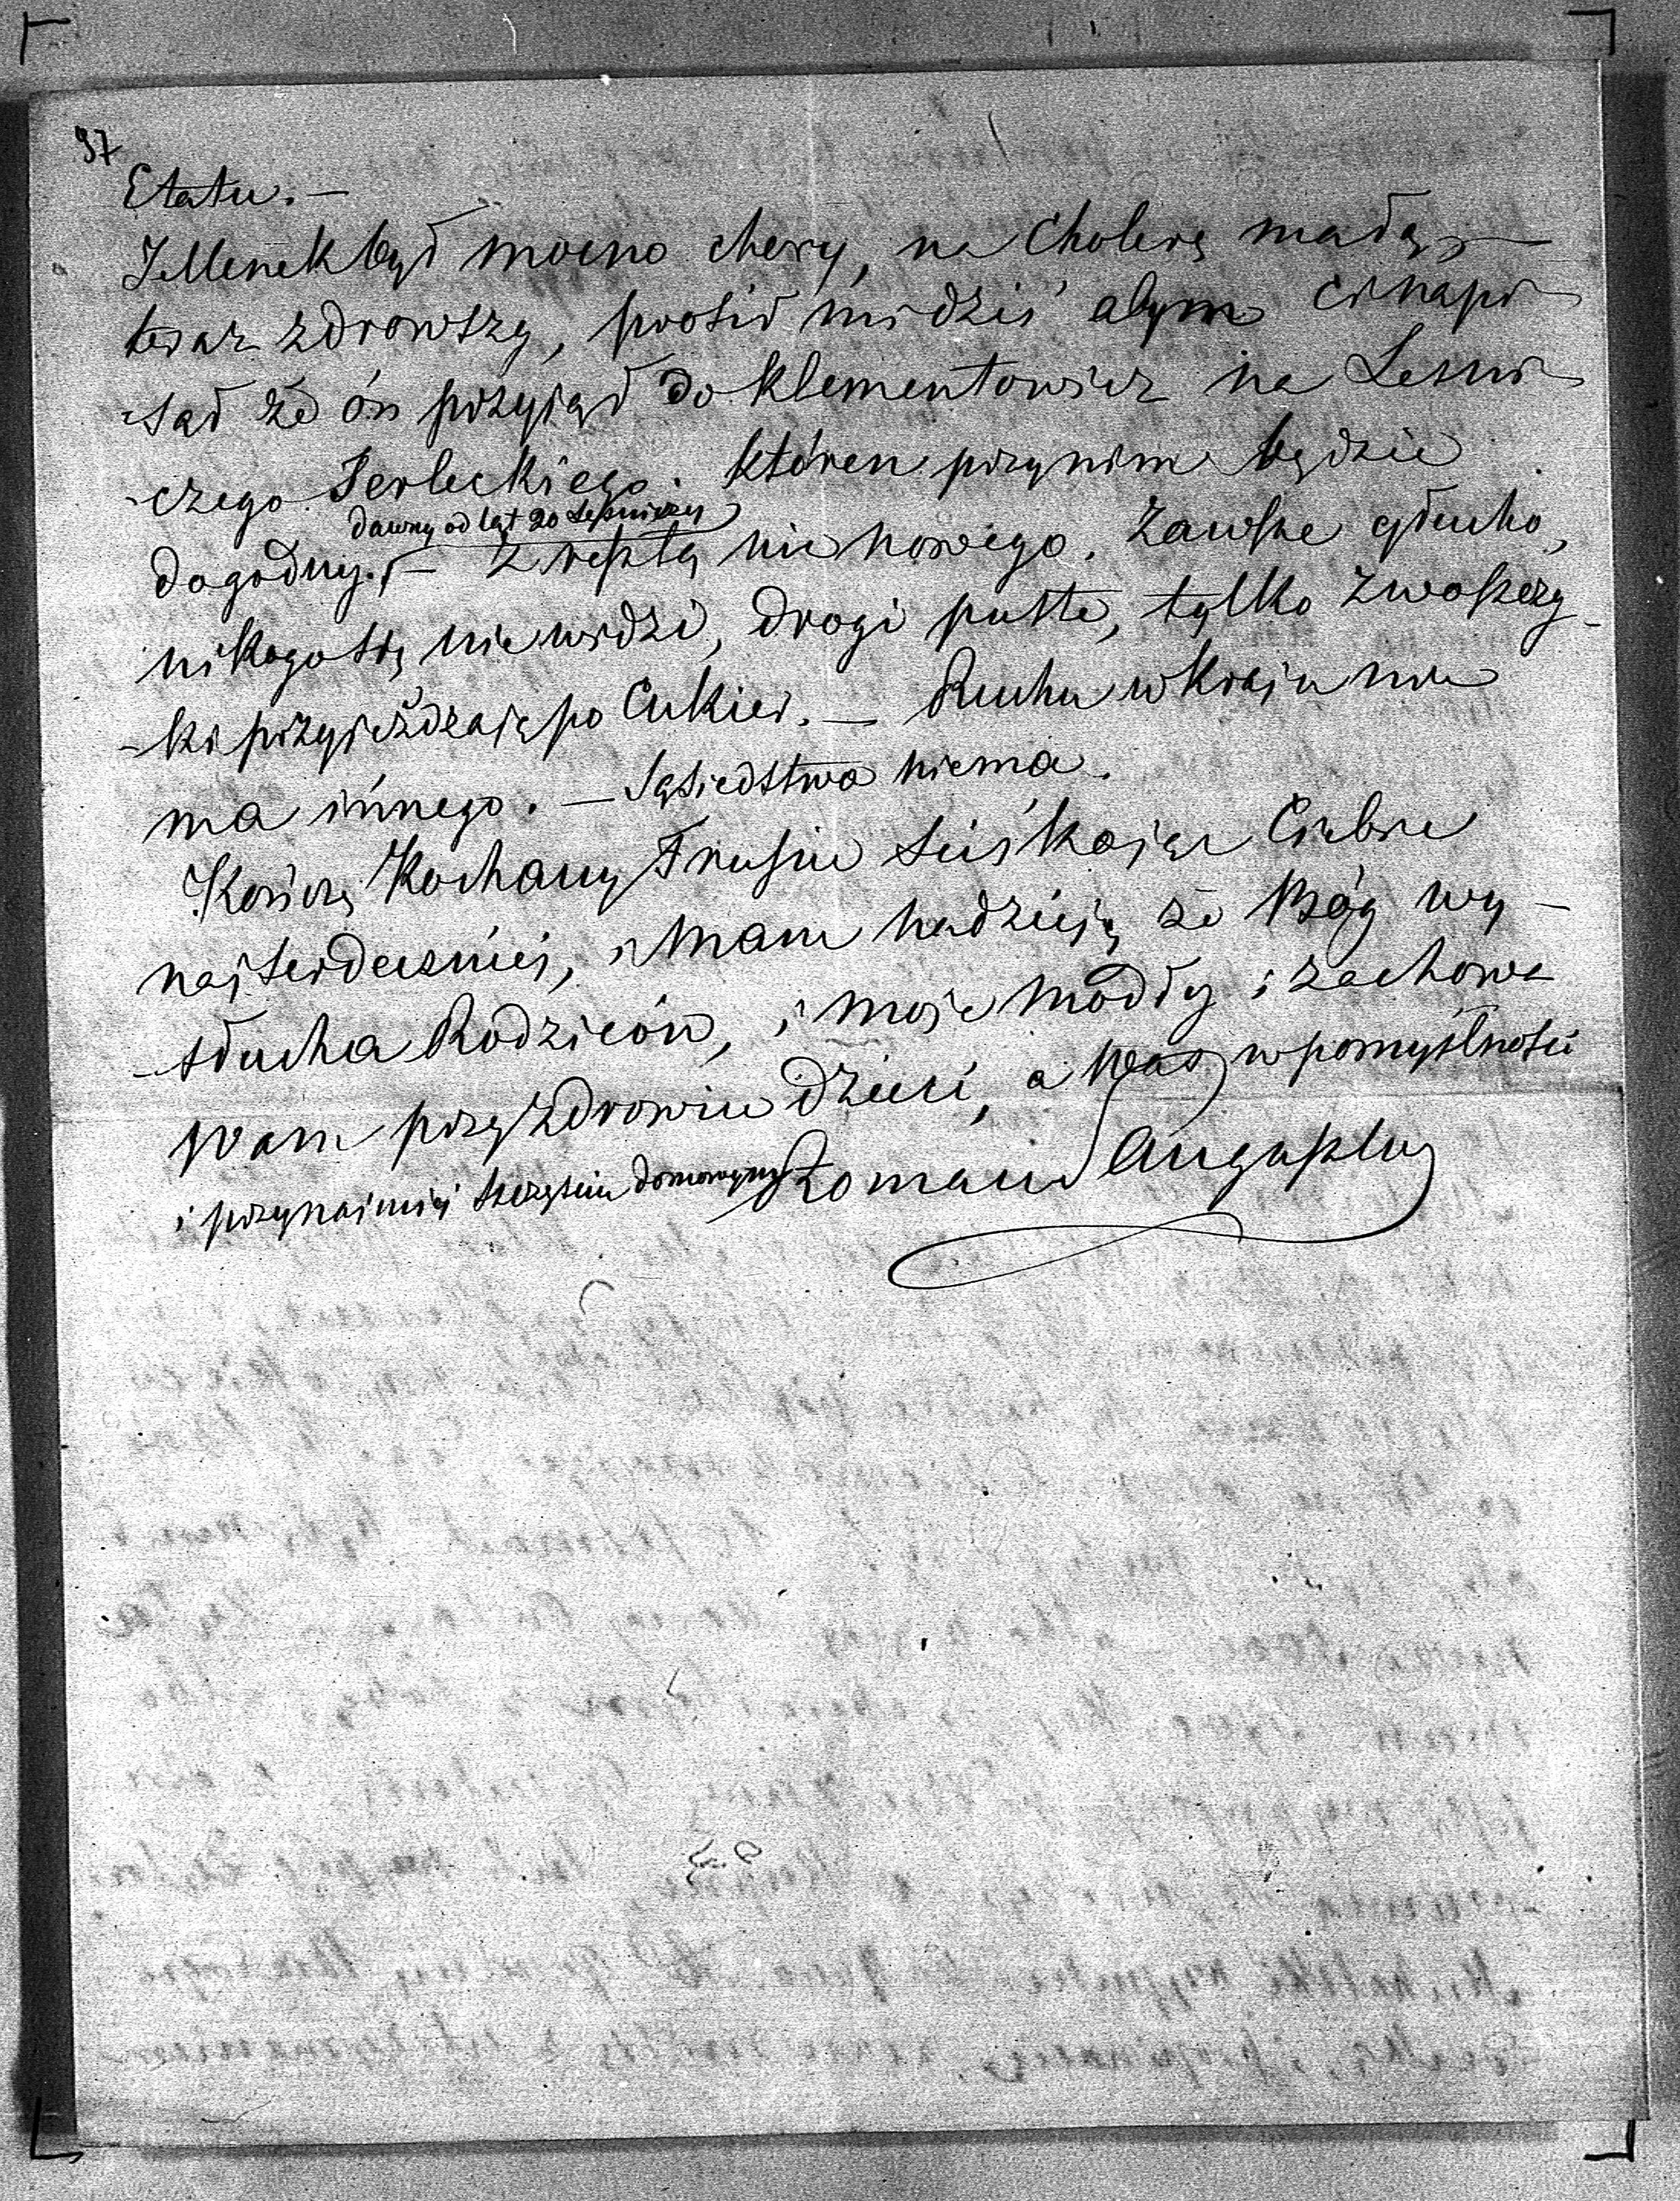 97
Etatu. —
Jellenek był mocno chory, na Cholerę małą, —
teraz zdrowszy, prosił mi dziś abym Ci napi
-sał że ón przyjął do Klementowicz na Leśni
-czego Terleckiego. któren przynim będzie
dawny od lat 20 Leśniczy
dogodny. — Zresztą nic nowego. Zawsze głucho,
nikogo się nie widzi, drogi puste, tylko Zwoszczy-
-ki przyjeżdzają po Cukier. — Ruchu w Kraju nie
ma innego. — Sąsiedstwa niema.
Kończę Kochany Trusiu Sciskając Ciebie
najserdeczniej, i Mam nadzieję że Bóg wy-
-słucha Rodziców, i moje modły i zachowa
Wam przy zdrowiu dzieci, a Was w pomyślności
i przynajmniej szczęściu domowym Roman